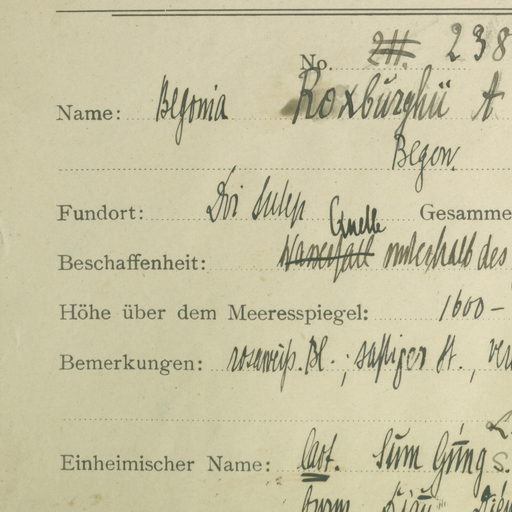 No. 238
Name: Begonia Roxburghii A
Begon.
Fundort: Doi Sutep Gesamme
Quelle
Beschaffenheit: Wasserfall unterhalb des
Höhe über dem Meeresspiegel: 1600-
Bemerkungen: rosaweiß. Bl.; saftiger St.,
Einheimischer Name: Sum Gung